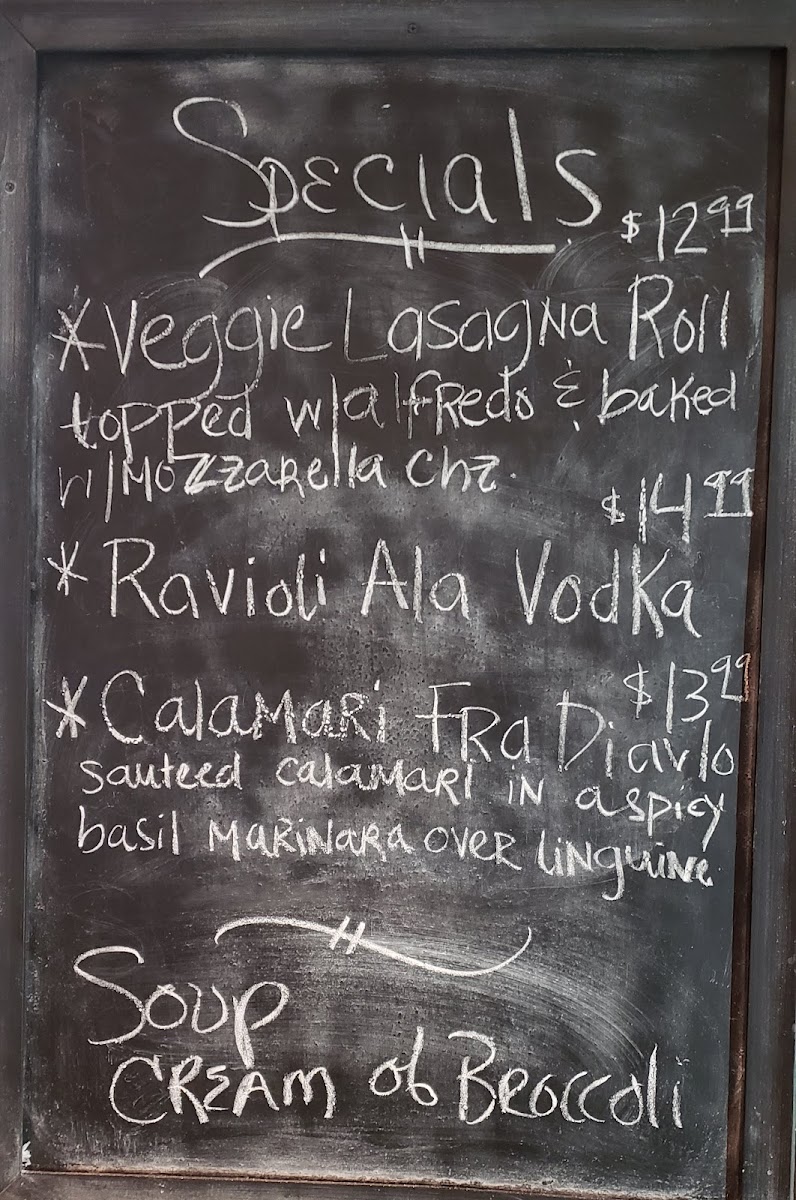 Specials
$12.99
*Veggie Lasagna Roll
topped w/alfredo & baked
w/Mozzarella Chz.
$14.99
* Ravioli Ala Vodka
$13.99
*Calamari Fra Diavlo
sauteed calamari in a spicy
basil marinara over linguine
Soup
Cream of Broccoli